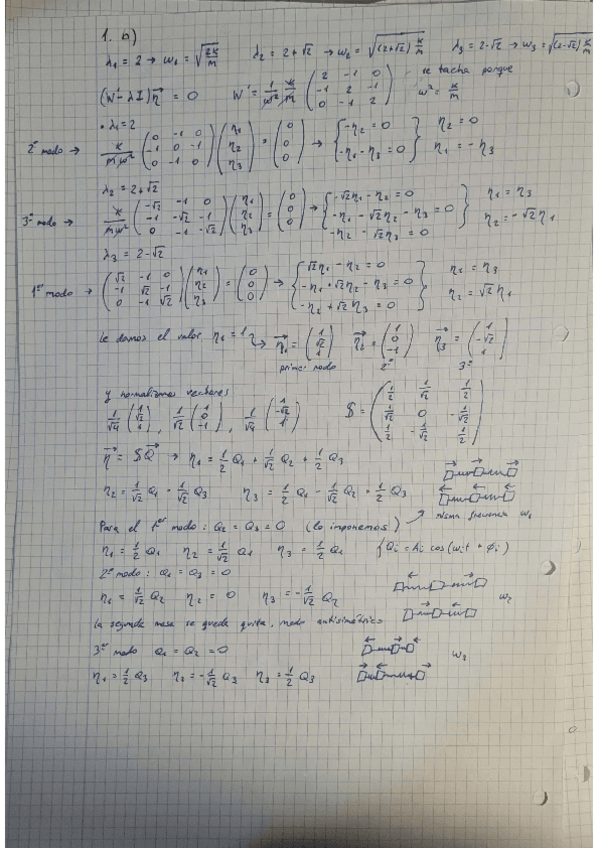 1. b)
λ₁ = 2 → ω₁ = √(2K/m)    λ₂ = 2+√2 → ω₂ = √((2+√2) K/m)    λ₃ = 2-√2 → ω₃ = √((2-√2) K/m)
(W' - λI) η⃗ = 0    W' = 1/ω² K/m ( 2 -1 0 ; -1 2 -1 ; 0 -1 2 )    se tacha porque ω² = K/m
• λ₁ = 2
2º modo → K/mω² ( 0 -1 0 ; -1 0 -1 ; 0 -1 0 ) ( η₁ ; η₂ ; η₃ ) = ( 0 ; 0 ; 0 ) → { -η₂ = 0 ; -η₁ - η₃ = 0 }    η₂ = 0    η₁ = -η₃
λ₂ = 2+√2
3º modo → K/mω² ( -√2 -1 0 ; -1 -√2 -1 ; 0 -1 -√2 ) ( η₁ ; η₂ ; η₃ ) = ( 0 ; 0 ; 0 ) → { -√2η₁ - η₂ = 0 ; -η₁ - √2η₂ - η₃ = 0 ; -η₂ - √2η₃ = 0 }    η₁ = η₃    η₂ = -√2 η₁
λ₃ = 2-√2
1er modo → ( √2 -1 0 ; -1 √2 -1 ; 0 -1 √2 ) ( η₁ ; η₂ ; η₃ ) = ( 0 ; 0 ; 0 ) → { √2η₁ - η₂ = 0 ; -η₁ + √2η₂ - η₃ = 0 ; -η₂ + √2η₃ = 0    η₁ = η₃    η₂ = √2 η₁
Le damos el valor η₁ = 1 → η⃗₁ = ( 1 ; √2 ; 1 )    η⃗₂ = ( 1 ; 0 ; -1 )    η⃗₃ = ( 1 ; -√2 ; 1 )
primer modo    2º    3º
y normalizamos vectores
1/√4 ( 1 ; √2 ; 1 ) , 1/√2 ( 1 ; 0 ; -1 ) , 1/√4 ( 1 ; -√2 ; 1 )    $ = ( 1/2 1/√2 1/2 ; 1/√2 0 -1/√2 ; 1/2 -1/√2 1/2 )
η⃗ = $Q⃗ → η₁ = 1/2 Q₁ + 1/√2 Q₂ + 1/2 Q₃
η₂ = 1/√2 Q₁ - 1/√2 Q₃    η₃ = 1/2 Q₁ - 1/√2 Q₂ + 1/2 Q₃
misma frecuencia ω₁
Para el 1er modo : Q₂ = Q₃ = 0 (lo imponemos)
η₁ = 1/2 Q₁    η₂ = 1/√2 Q₁    η₃ = 1/2 Q₁    { Qi = Ai cos(ωit + φi)
2º modo : Q₁ = Q₃ = 0
η₁ = 1/√2 Q₂    η₂ = 0    η₃ = -1/√2 Q₂    ω₂
la segunda masa se queda quieta, modo antisimétrico
3er modo Q₁ = Q₂ = 0    ω₃
η₁ = 1/2 Q₃    η₂ = -1/√2 Q₃    η₃ = 1/2 Q₃